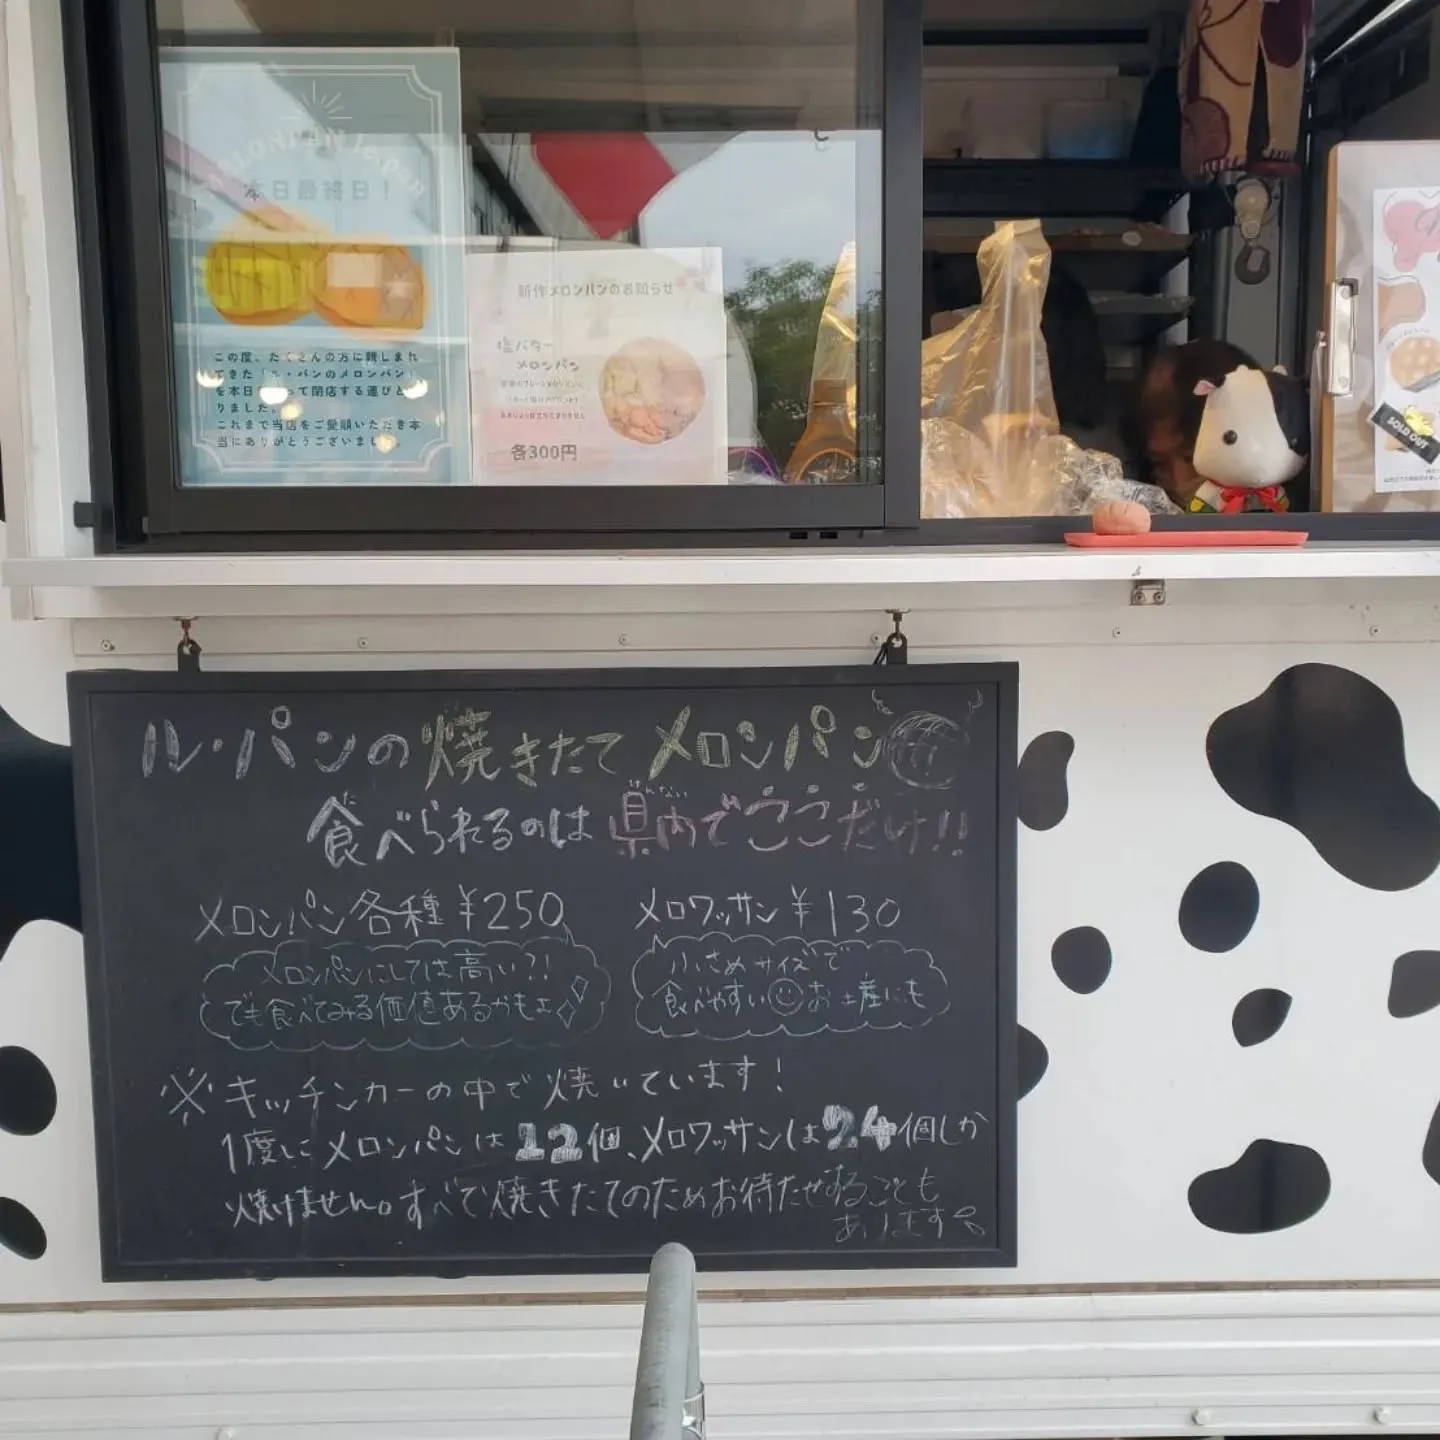 本日最終日！
この度、たくさんの方に親しまれ
てきた「ル・パンのメロンパン」
を本日
って閉店する運びと
りました。
これまで当店をご愛顧いただき本
当にありがとうございました。
新作メロンパンのお知らせ
塩バター
メロンパン
各300円
SOLD OUT
ル・パンの焼きたてメロンパン
食べられるのは県内でここだけ!!
た
けんない
メロンパン各種 ¥250
メロワッサン ¥130
メロンパンにしては高い?!
でも食べてみる価値あるかもよ
小さめサイズで
食べやすい お土産にも
※キッチンカーの中で焼いています！
1度にメロンパンは12個、メロワッサンは24個しか
焼けません。すべて焼きたてのためお待たせすることも
あります